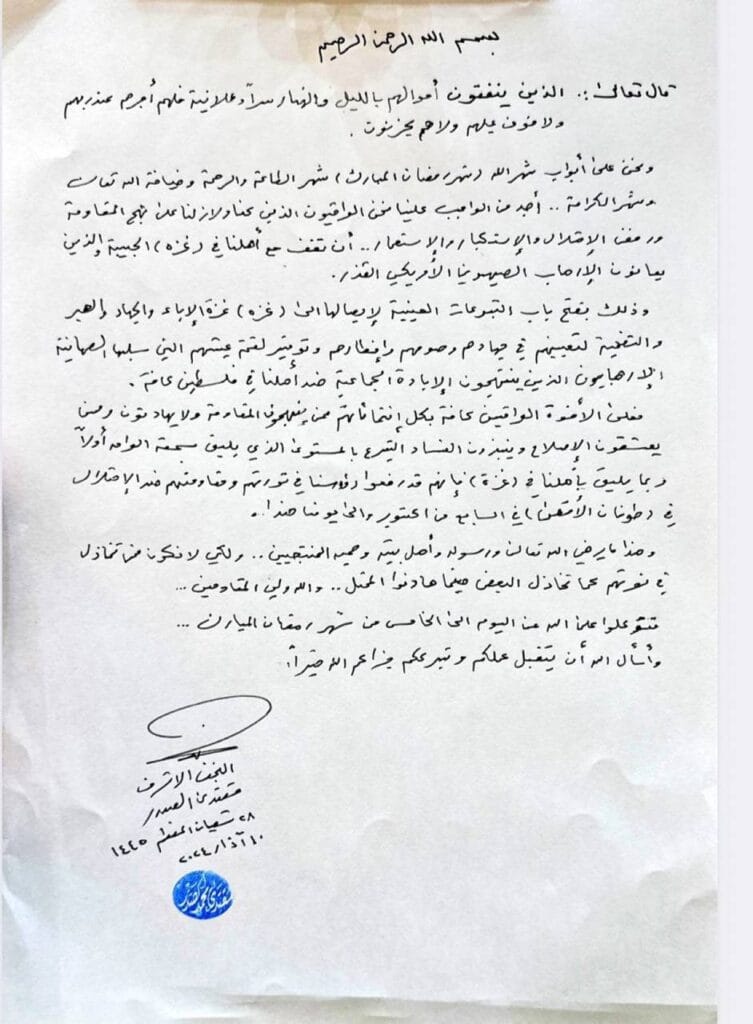 بسم الله الرحمن الرحيم
قال تعالى:. الذين ينفقون أموالهم بالليل والنهار سراً وعلانية فلهم أجرهم عند ربهم
ولا خوف عليهم ولا هم يحزنون .
ونحن على أبواب شهر الله (شهر رمضان المبارك) شهر الطاعة والرحمة وضيافة الله تعالى
وشهر الكرامة .. أجد من الواجب علينا نحن العراقيون الذين كنا ولازلنا على نهج المقاومة
ورفض الإحتلال والإستكبار والإستعمار .. أن نقف مع أهلنا في (غزة) الحبيبة والذين
يعانون الإرهاب الصهيوني الأمريكي القذر.
وذلك بفتح باب التبرعات العينية لإيصالها الى (غزة) غزة الإباء والجهاد والصبر
والتضحية لتعينهم في جهادهم وصومهم وإفطارهم وتوفير لقمة عيشهم التي سلبها الصهاينة
الإرهابيون الذين ينتهجون الإبادة الجماعية ضد أهلنا في فلسطين عامة .
فعلى الأخوة العراقيين عامة بكل إنتمائاتهم ممن ينتهجون المقاومة ولا يهادنون وممن
يعشقون الإصلاح وينبذون الفساد التبرع بالمستوى الذي يليق بسمعة العراق أولاً
وبما يليق بأهلنا في (غزة) فإنهم قد رفعوا رؤوسنا في ثورتهم ومقاومتهم ضد الإحتلال
في (طوفان الأقصى) في السابع من اكتوبر والى يومنا هذا..
وهذا ما يرضي الله تعالى ورسوله وأهل بيته وصحبه المنتجبين .. ولكي لا نكون ممن تخاذل
في نصرتهم كما تخاذل البعض حينما هادنوا المحتل .. والله ولي المقاومين ...
فتوكلوا على الله من اليوم الى الخامس من شهر رمضان المبارك ...
وأسأل الله أن يتقبل عملكم وتبرعكم فجزاكم الله خيراً.
النجف الاشرف
مقتدى الصدر
٢٨ شعبان المعظم ١٤٤٥
١٠ آذار ٢٠٢٤